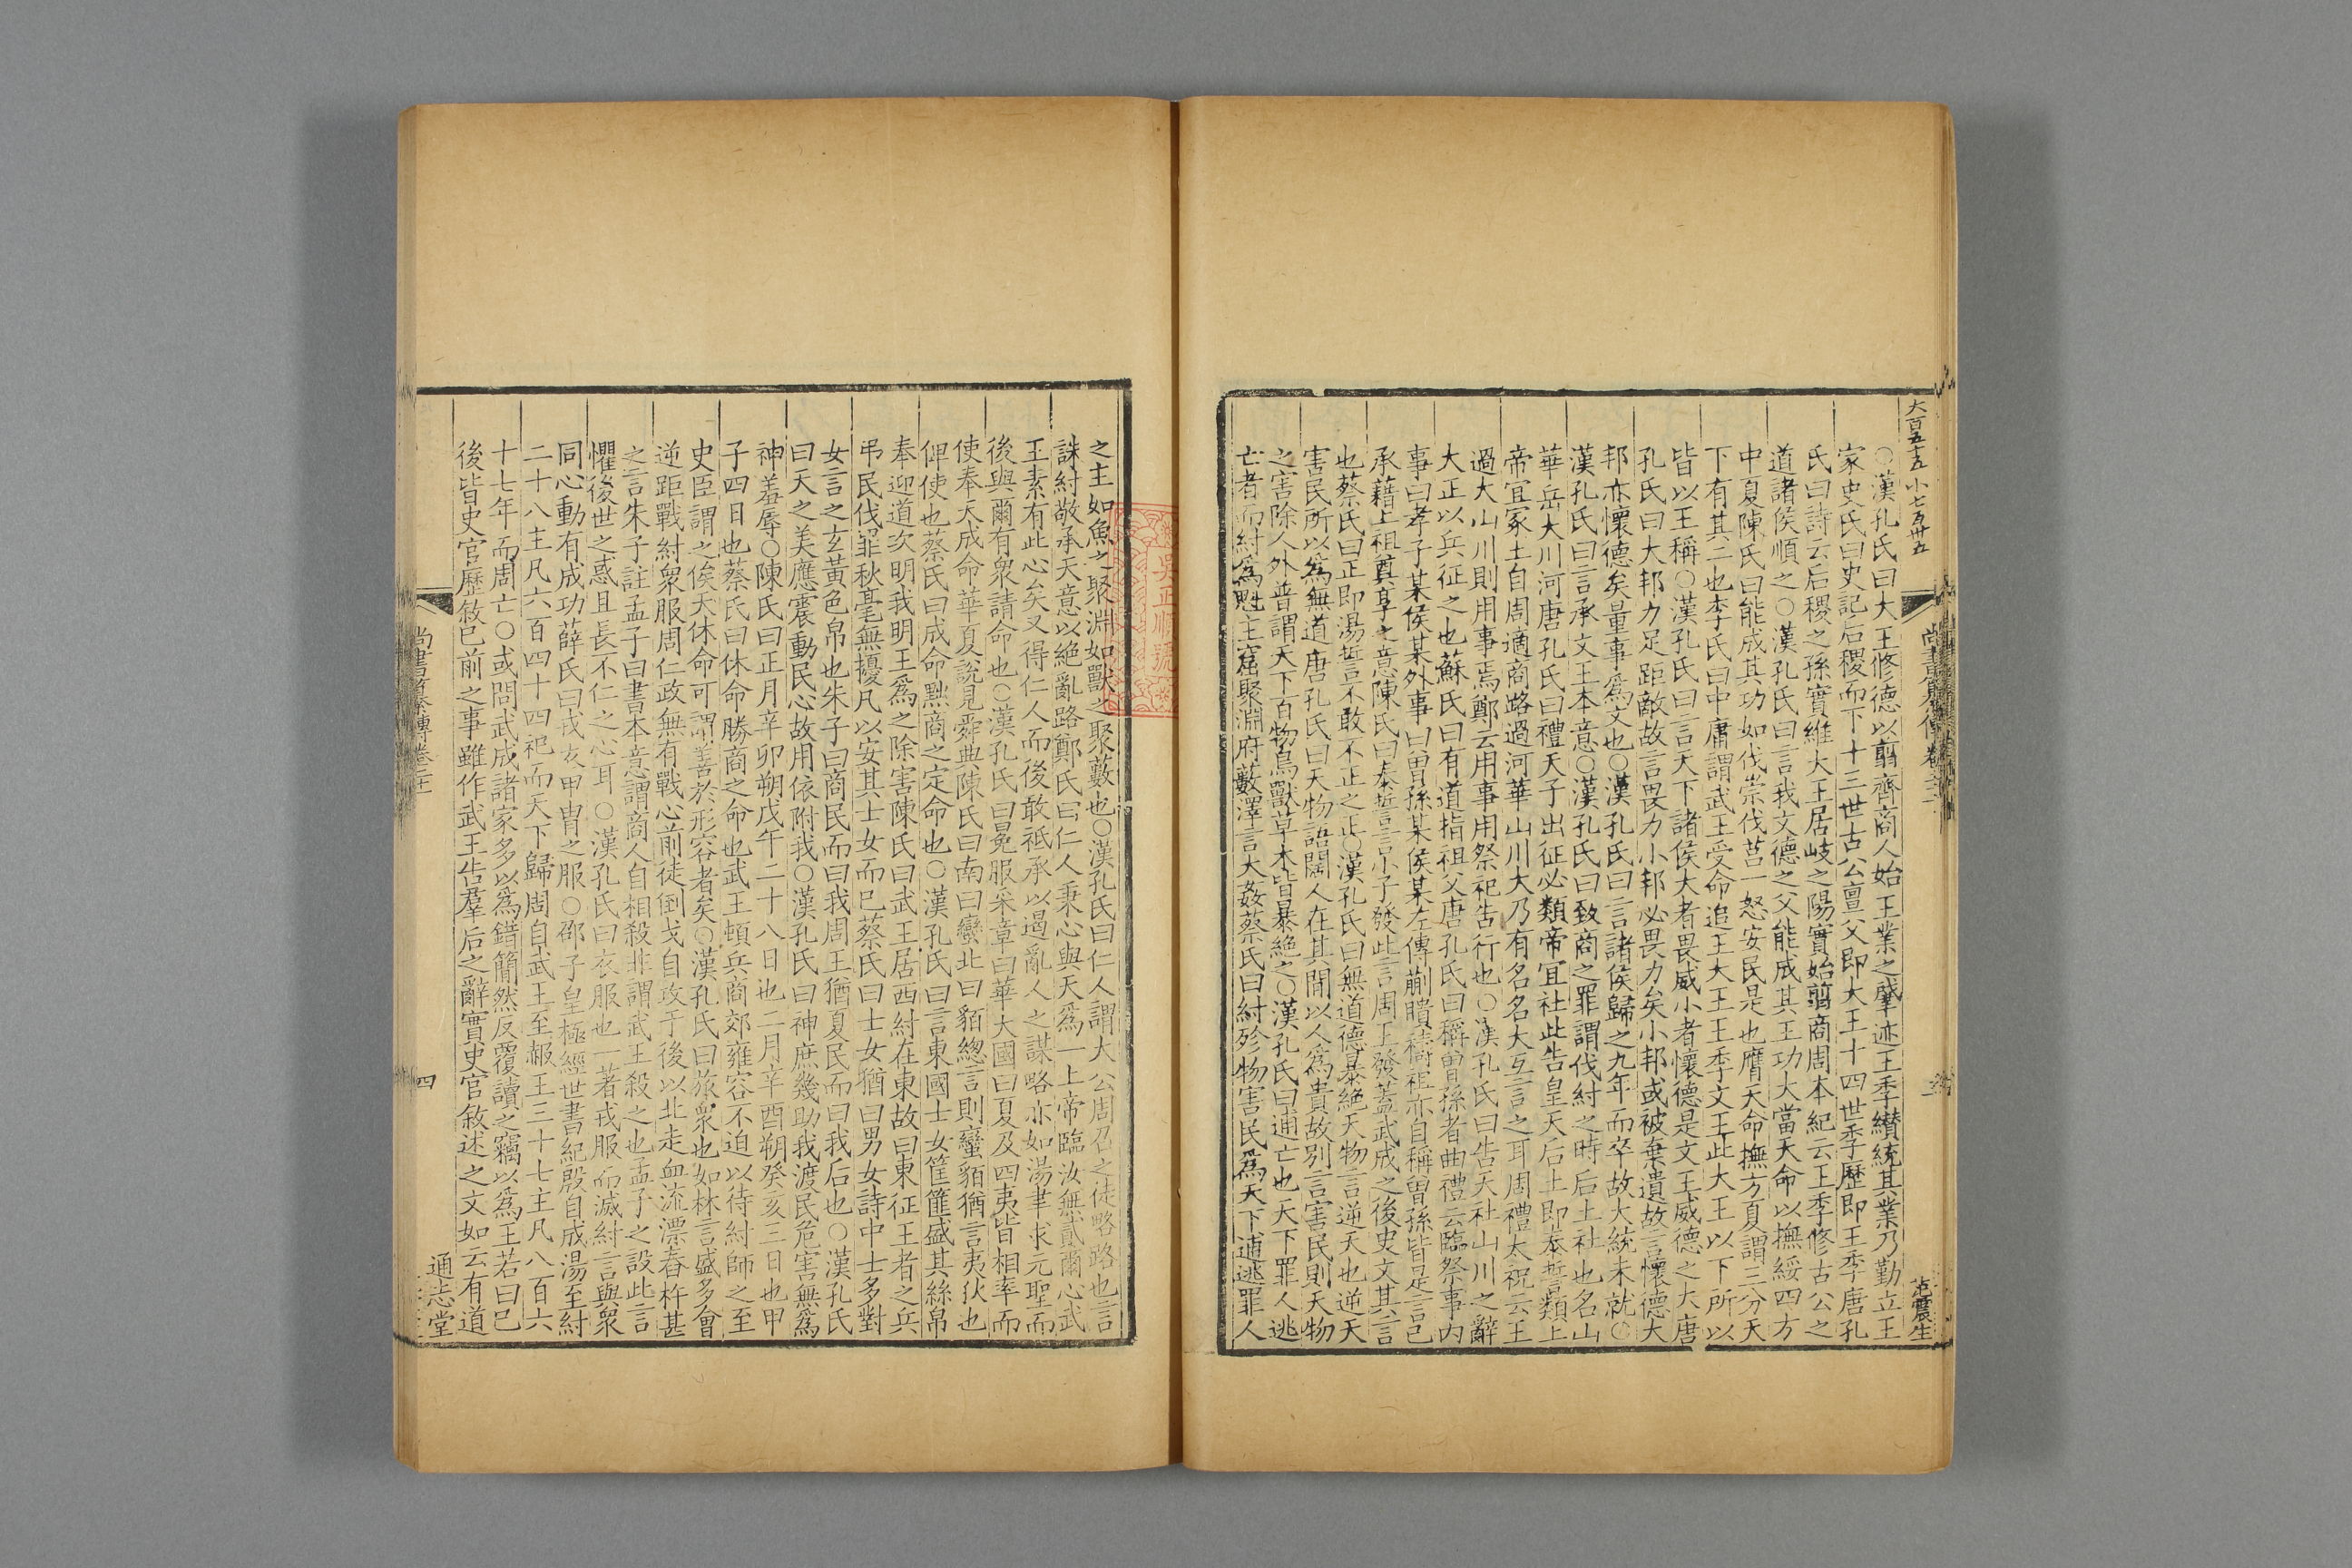 大百五十五小七百卅五
范震生
○漢孔氏曰大王修德以翦齊商人始王業之肇迹王季纉統其業乃勤立王
家史氏曰史記后稷而下十三世古公亶父即大王十四世季歷即王季唐孔
氏曰詩云后稷之孫實維大王居岐之陽實始翦商周本紀云王季修古公之
道諸侯順之○漢孔氏曰言我文德之父能成其王功大當天命以撫綏四方
中夏陳氏曰能成其功如伐崇伐莒一怒安民是也膺天命撫方夏謂三分天
下有其二也李氏曰中庸謂武王受命追王大王王季文王此大王以下所以
皆以王稱○漢孔氏曰言天下諸侯大者畏威小者懷德是文王威德之大唐
孔氏曰大邦力足距敵故言畏力小邦必畏力矣小邦或被棄遺故言懷德大
邦亦懷德矣量事爲文也○漢孔氏曰言諸侯歸之九年而卒故大統未就○
漢孔氏曰言承文王本意○漢孔氏曰致商之罪謂伐紂之時后土社也名山
華岳大川河唐孔氏曰禮天子出征必類帝宜社此告皇天后土即泰誓類上
帝宜冢土自周適商路過河華山川大乃有名名大互言之耳周禮大祝云王
過大山川則用事焉鄭云用事用祭祀告行也○漢孔氏曰告天社山川之辭
大正以兵征之也蘇氏曰有道指祖父唐孔氏曰稱曽孫者曲禮云臨祭事内
事曰孝子某侯某外事曰曽孫某侯某左傳蒯聵禱祖亦自稱曽孫皆是言己
承藉上祖奠享之意陳氏曰泰誓言小子發此言周王發蓋武成之後史文其言
也蔡氏曰正即湯誓不敢不正之正○漢孔氏曰無道德暴絶天物言逆天也逆天
害民所以爲無道唐孔氏曰天物語闊人在其間以人爲貴故别言害民則天物
之害除人外普謂天下百物鳥獸草木皆暴絶之○漢孔氏曰逋亡也天下罪人逃
亡者而紂爲魁主窟聚淵府藪澤言大姦蔡氏曰紂殄物害民爲天下逋逃罪人
之主如魚之聚淵如獸之聚藪也○漢孔氏曰仁人謂大公周召之徒略路也言
誅紂敬承天意以絶亂路鄭氏曰仁人秉心與天爲一上帝臨汝無貳爾心武
王素有此心矣又得仁人而後敢祗承以遏亂人之謀略亦如湯聿求元聖而
後與爾有衆請命也○漢孔氏曰冕服采章曰華大國曰夏及四夷皆相率而
使奉天成命華夏説見舜典陳氏曰南曰蠻北曰貊總言則蠻貊猶言夷狄也
俾使也蔡氏曰成命黜商之定命也○漢孔氏曰言東國士女筐篚盛其絲帛
奉迎道次明我明王爲之除害陳氏曰武王居西紂在東故曰東征王者之兵
弔民伐罪秋毫無擾凡以安其士女而已蔡氏曰士女猶曰男女詩中士多對
女言之玄黃色帛也朱子曰商民而曰我周王猶夏民而曰我后也○漢孔氏
曰天之美應震動民心故用依附我○漢孔氏曰神庶幾助我渡民危害無爲
神羞辱○陳氏曰正月辛卯朔戊午二十八日也二月辛酉朔癸亥三日也甲
子四日也蔡氏曰休命勝商之命也武王頓兵商郊雍容不迫以待紂師之至
史臣謂之俟天休命可謂善於形容者矣○漢孔氏曰旅衆也如林言盛多會
逆距戰紂衆服周仁政無有戰心前徒倒戈自攻于後以北走血流漂舂杵甚
之言朱子註孟子曰書本意謂商人自相殺非謂武王殺之也孟子之設此言
懼後世之惑且長不仁之心耳○漢孔氏曰衣服也一著戎服而滅紂言與衆
同心動有成功薛氏曰戎衣甲胄之服○邵子皇極經世書紀殷自成湯至紂
二十八主凡六百四十四祀而天下歸周自武王至赧王三十七主凡八百六
十七年而周亡○或問武成諸家多以爲錯簡然反覆讀之竊以爲王若曰已
後皆史官歷敘已前之事雖作武王告羣后之辭實史官敘述之文如云有道
尚書纂傳卷二十一
四
通志堂